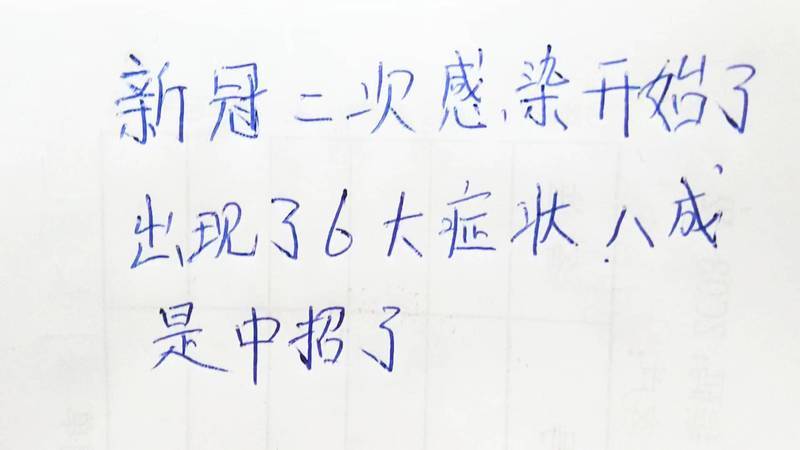 新冠二次感染开始了
出现了6大症状八成
是中招了